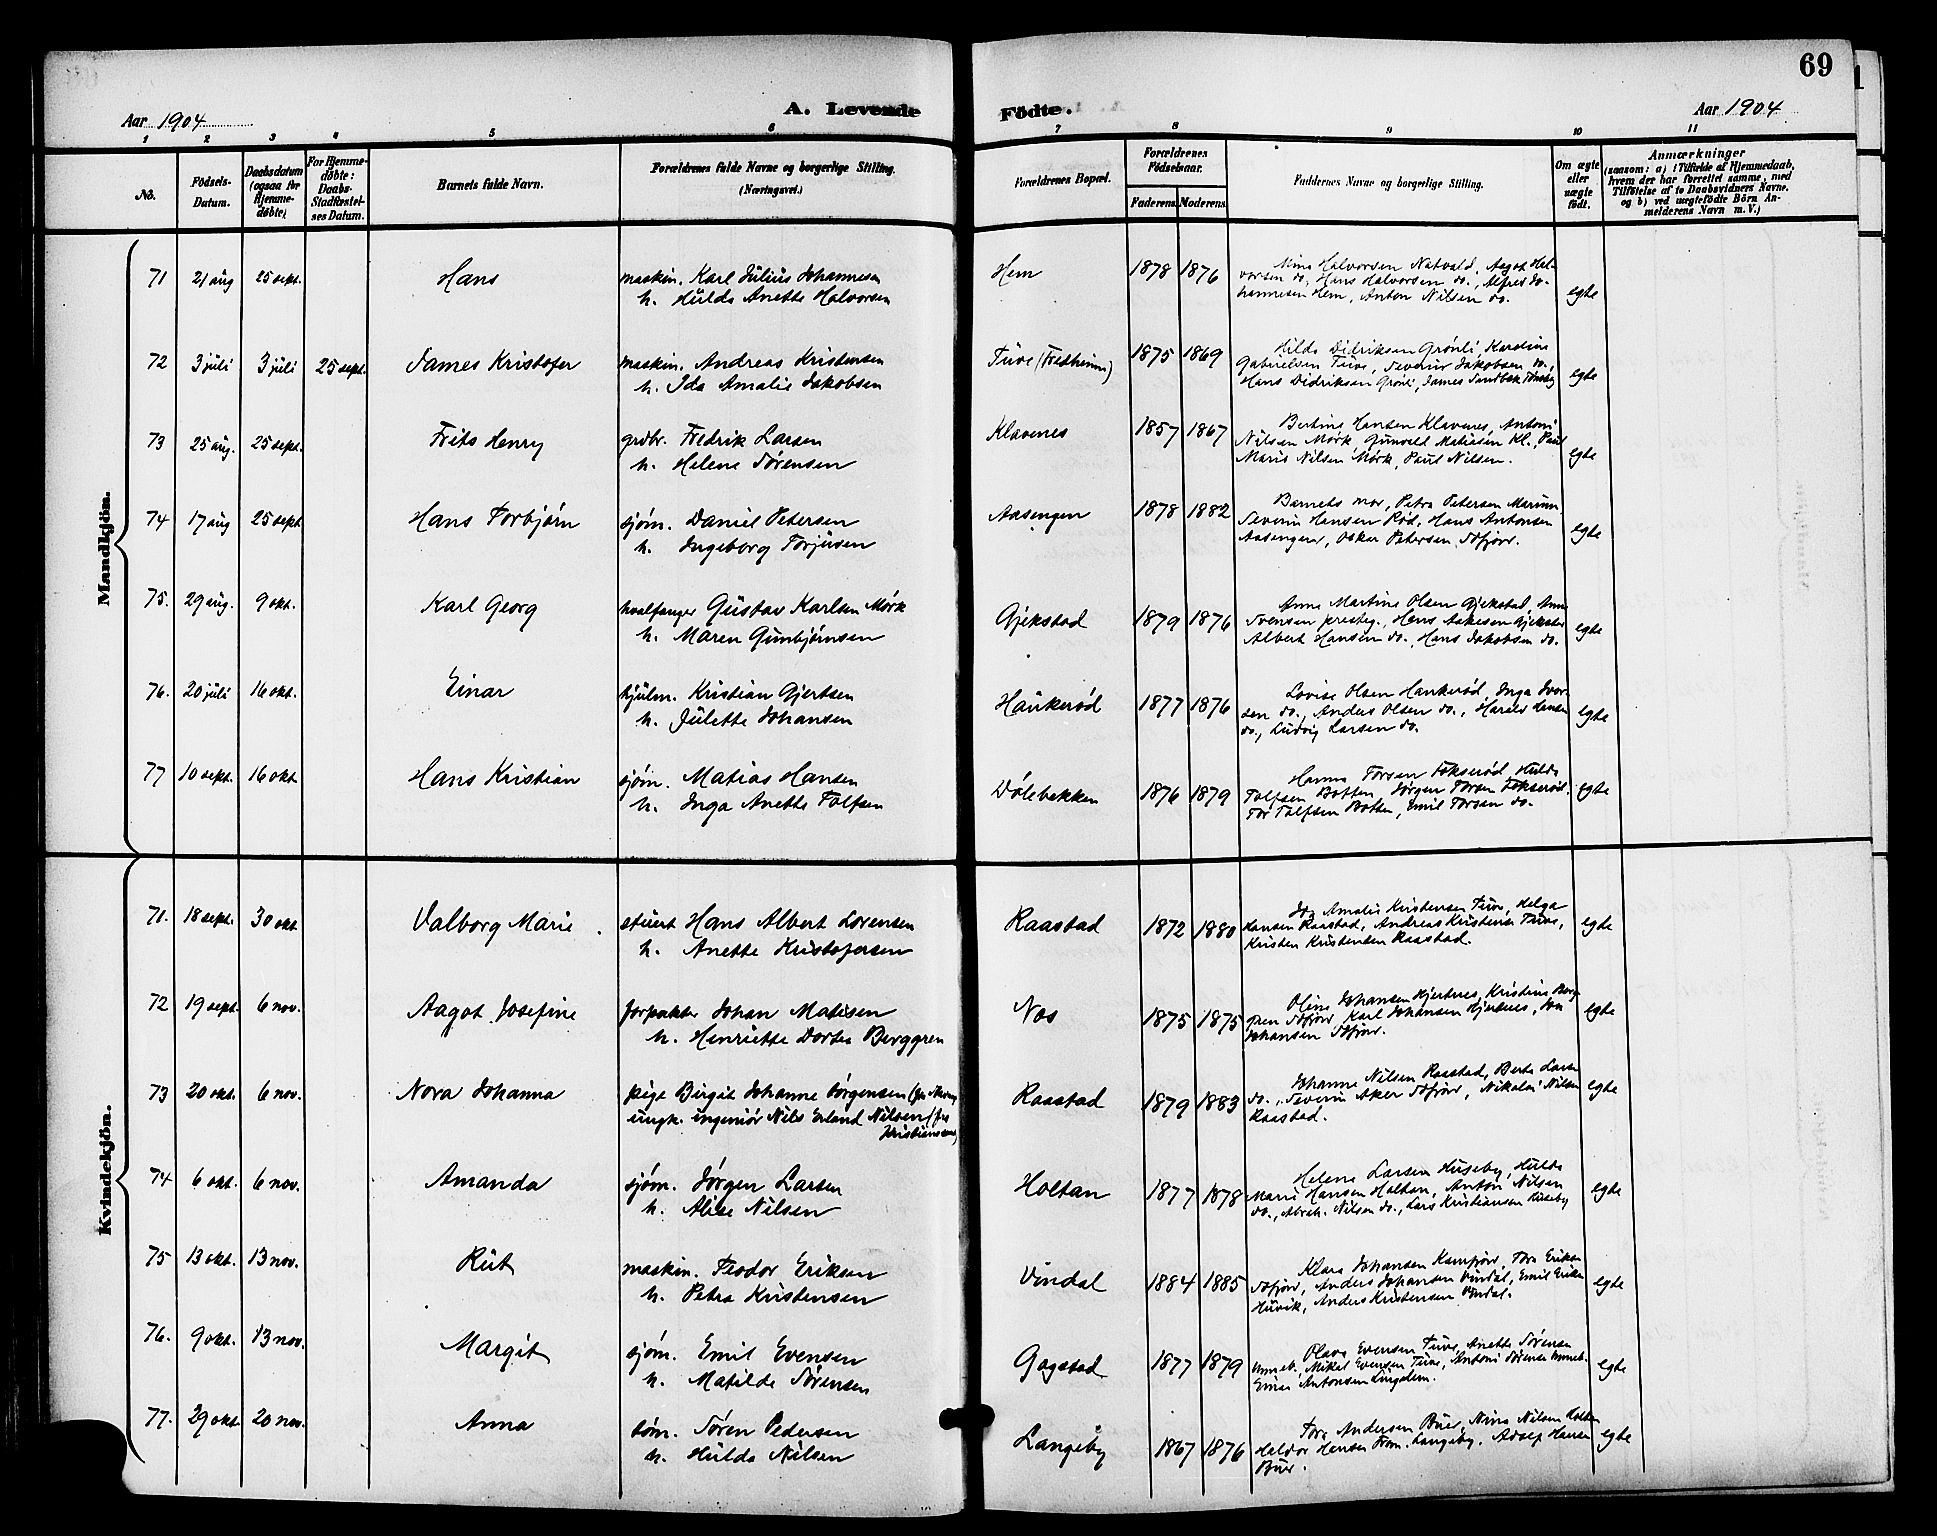 69
Aar 1904
A. Levende
Födte.
Aar 1904
1 2 3 4 5 6 7 8 9 10 11
No.
Födsels-
Datum.
Daabsdatum
(ogsaa for
Hjemme-
döbte)
For Hjemme-
döbte:
Daabs-
Stadfæstel-
ses Datum.
Barnets fulde Navn.
Forældrenes fulde Navne og borgerlige Stilling.
(Næringsvei.)
Forældrenes Bopæl.
Forældrenes
Födselsaar.
Faderens. Moderens.
Faddernes Navne og borgerlige Stilling.
Om ægte
eller
uægte
födt.
Anmærkninger
(saasom: a) i Tilfælde af Hjemmedaab,
hvem der har forrettet samme, med
Tilföielse af to Daabsvidners Navne,
og b) ved uægtefödte Börn An-
melderens Navn m. V.)
Mandkjön.
71 21 aug 25 sept. Hans maskin. Karl Julius Johannesen
h. Hulda Anette Halvorsen
Hem 1878 1876
Halvorsen Natvald, Aagot Hal-
vorsen do, Hans Halvorsen do., Alfred Jo-
hannesen Hem, Anton Nilsen do.
egte
72 3 juli 3 juli 25 sept. James Kristofer maskin. Andreas Kristensen
h. Ida Amalie Jakobsen
Tuve (Fredheim) 1875 1869
Hilda Didriksen Grönli, Karoline
Gabrielsen Tuve, Severin Jakobsen do.,
Hans Didriksen Grönli, James Sundbek Tønsbg
egte
73 25 aug. 25 sept. Frits Henry grdbr. Fredrik Larsen
h. Helene Sørensen
Klavenes 1857 1867
Bertine Hansen Klavenes, Antoni
Nilsen Mørk, Gunvald Matisen Kl., Paul
Maris Nilsen Mørk, Paul Nilsen.
egte
74 17 aug 25 sept Hans Torbjørn sjøm. Daniel Petersen
h. Ingeborg Torjusen
Aasengen 1878 1882
Barnets mor, Petra Petersen
Severin Hansen Rød, Hans Antonsen
Aasengen, Oskar Petersen Sdfjor.
egte
75. 29 aug. 9 okt. Karl Georg hvalfanger Gustav Karlsen Mørk
h. Maren Gunbjørnsen
Gjekstad 1879 1876
Anne Martine Olsen Gjekstad, Anne
Svensen presteg., Hans Gjekstad
Albert Hansen do., Hans Jakobsen do.
egte
76. 20 juli 16 okt. Einar hjulm. Kristian Gjertsen
h. Julette Johansen
Haukerød 1877 1876
Lovise Olsen Haukerød, Inga Ivar-
sen do., Anders Olsen do., Harald Hansen
do., Ludvig Larsen do.
egte
77 10 sept. 16 okt Hans Kristian sjøm. Matias Hansen
h. Inga Anette Tolfsen
Dølebakken 1876 1879
Hanna Torsen Fokserød, Hulda
Tolfsen Botten, Jørgen Torsen Fokserød,
Tor Tolfsen Botten, Emil Torsen do.
egte
Kvindekjön.
71. 18 sept. 30 okt Valborg Marie stuert Hans Albert Lorensen
h. Anette Kristofersen
Raastad 1872 1880
Ida Amalie Kristensen Tuve, Helga
Hansen Raastad, Andreas Kristensen Tuve,
Kristen Kristensen Raastad.
egte
72 19 sept. 6 nov. Aagot Josefine forpakter Johan Matisen
h. Henriette Dortea Berggren
Nes 1875 1875
Oline Johansen Hjertnes, Kristine Berg-
gren Sdfjor, Karl Johansen Hjertnes,
Johansen Sdfjor.
egte
73 20 okt. 6 nov. Nora Johanna pige Birgit Johanne Sørgensen (fra
ungk. ingeniör Nils Erland Nilsen (fra
Kristianssund)
Raastad 1879 1883
Johanne Nilsen Raastad, Berta Larsen
do., Severin Aker Sdfjor, Nikolai Nilsen
Raastad.
egte
74 6 okt. 6 nov. Amanda sjøm. Jørgen Larsen
h. Alise Nilsen
Holtan 1877 1878
Helene Larsen Huseby, Hulda
Marie Hansen Holtan, Anton Nilsen
do., Abrah. Nilsen do., Lars Kristiansen Huseby
egte
75 13 okt. 13 nov. Rut maskin. Teodor Eriksen
h. Petra Kristensen
Vindal 1884 1885
Klara Johansen Kamfjor, Tora Eriksen
Sdfjor, Anders Johansen Vindal, Emil Eriksen
Huvik, Anders Kristensen Vindal.
egte
76. 9 okt. 13 nov. Margit sjøm. Emil Evensen
h. Matilde Sørensen
Gogstad 1877 1879
Olava Evensen Tuve, Anette Sørensen
Unneb., Mikal Evensen Tuve, Antoni Sørensen Unneb.
Einar Antonsen Lingelem.
egte
77. 29 okt. 20 nov. Anna tøm. Søren Pedersen
h. Hulda Nilsen
Langeby 1867 1876
Tora Andersen Buer, Nina Nilsen Holtan
Haldor Hansen Fram. Langeby, Adolf Hansen
Buer.
egte